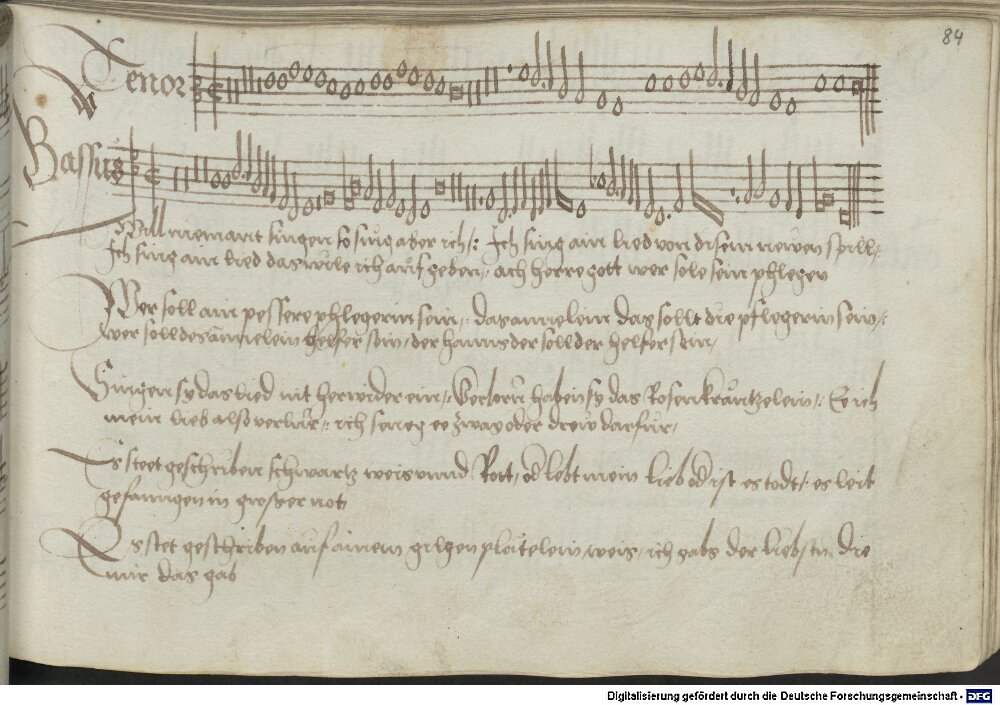 84
Tenor
Bassus
Will niemant singen so sing aber ich /: Ich sing ain lied von disem newen spill /:
Ich sing ain lied das wile ich auf geben /: ach herre gott wer sole sein phleger
Wer soll ain pessere phlegerin sein /: das annelein das sollt die pflegerin sein /:
wer soll des annelein helfer sein / der hanns der soll der helfer sein /
Singen sy das lied nit herwider ein /: Verlorn haben sy das Rosenkräntzelein /: Ee ich
mein lieb also verlür /: ich ee zway oder drew darfür /
Es steet geschriben schwartz weis unnd Rott / od lebt mein lieb od ist es todt /: es leit
gefanngen in grosser not
Es stet geschriben auf ainem gilgen plätelein weis / ich gabs der liebsten die
mir das gab
Digitalisierung gefördert durch die Deutsche Forschungsgemeinschaft - DFG